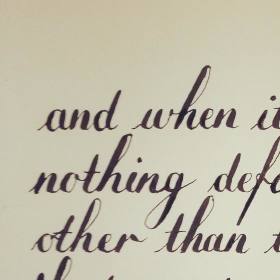 and when it
nothing defa
other than t